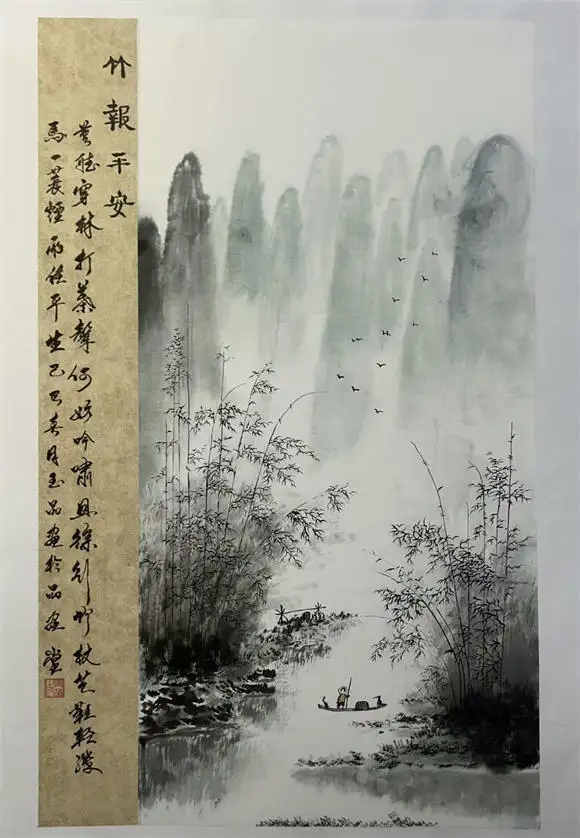 竹報平安
莫聽穿林打葉聲何妨吟嘯且徐行竹杖芒鞋輕勝
馬一蓑煙雨任平生己巳春月玉品畫於品堂